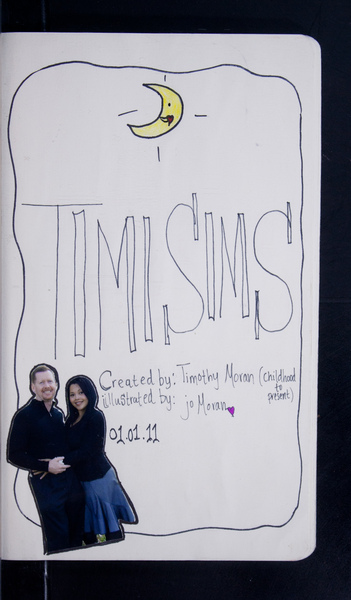 TIMISIMS
Created by: Timothy Moran (childhood to present)
illustrated by: jo Moran
01.01.11